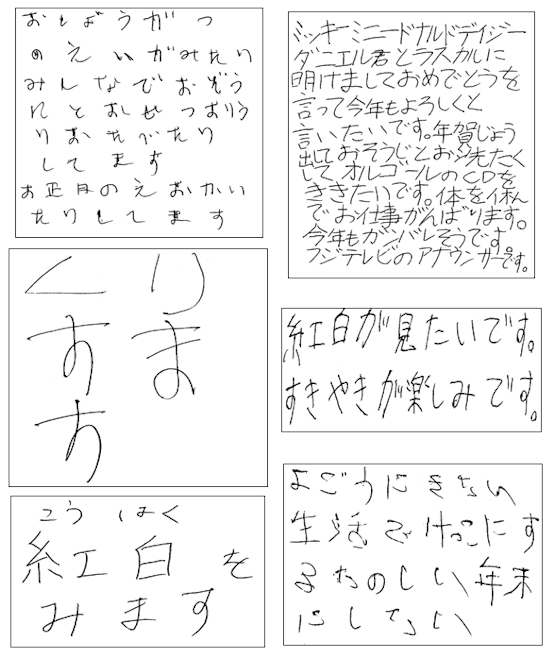 おしょうがつ
のえいがみたり
みんなでおぞう
にとおしせつおりう
りおたべたり
してます
お正月のえおかい
たりしてます
ミッキーミニードナルドデイジー
ダニエル君とラスカルに
明けましておめでとうを
言って今年もよろしくと
言いたいです。年賀じょう
出しておそうじとお洗たく
してオルゴールのCDを
ききたいです。体を休ん
でお仕事がんばります。
今年もガンバレそうです。
フジテレビのアナウンサーです。
くり
すま
す
紅白が見たいです。
すきやきが楽しみです。
こうはく
紅白を
みます
きない
生活で
たのしい年末
にしたい